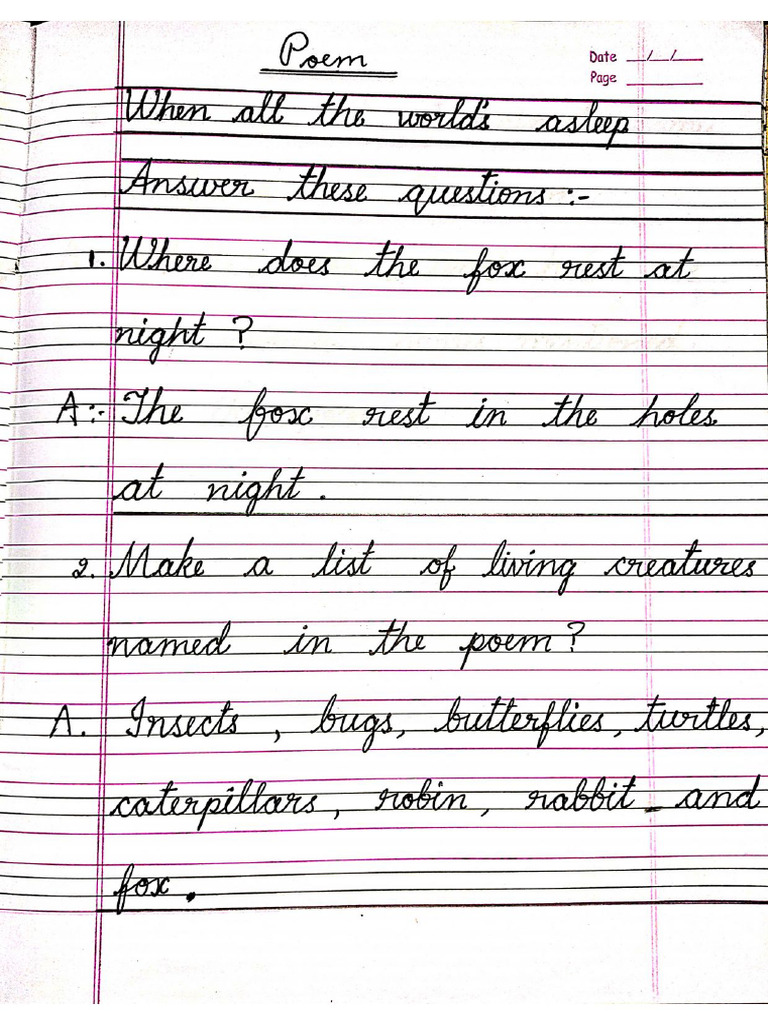 Poem
Date _/_/_
Page
When all the world's asleep
Answer these questions :-
1. Where does the fox rest at
night ?
A:- The fox rest in the holes
at night .
2. Make a list of living creatures
named in the poem ?
A. Insects , bugs, butterflies, turtles,
caterpillars, robin, rabbit and
fox.